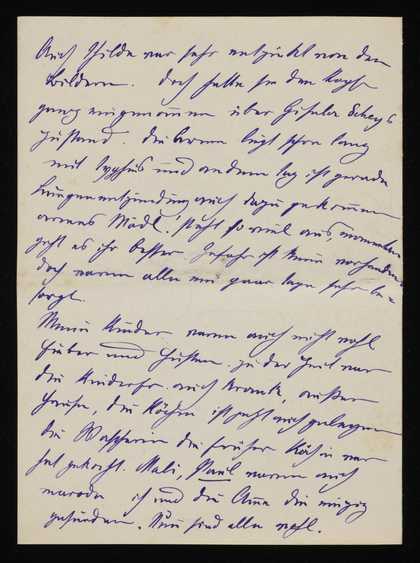 Auch Thilda war sehr entzückt von den
Bildern. Doch hatte sie den Kopf
ganz eingenommen über Gisela Schey's
Zustand. Die Arme liegt schon lang
mit Typhus und andern Tag ist gerade
Lungenentzündung auch dazu gekommen
armes Mädl! steht so viel aus, momentan
geht es ihr besser. Gefahr ist keine vorhanden
doch waren alle ein paar Tage sehr be=
sorgt.
Meine Kinder waren auch nicht wohl
Fieber und Husten. zu der Zeit war
die Kinderfr. auch krank, außer
Hause, die Köchin ist jetzt auch gelegen
die Wäscherin die früher Köchin war
hat gekocht. Mali, Paul waren auch
marode ich und die Anna die einzig
gesunden. Nun sind alle wohl.